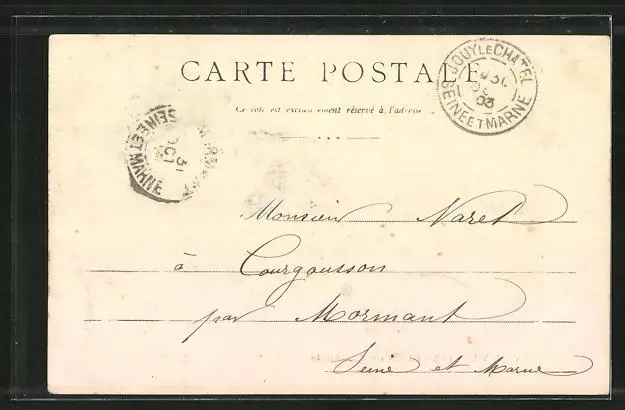 CARTE POSTALE
Ce côté est exclusivement réservé à l'adresse
JOUY LE CHATEL
30
03
SEINE ET MARNE
SEINE ET MARNE
31
OCT
Monsieur Naret
à Courgousson
par Mormant
Seine et Marne